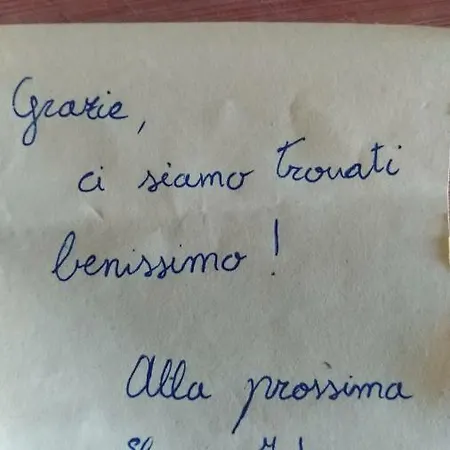 Grazie,
ci siamo trovati
benissimo!
Alla prossima